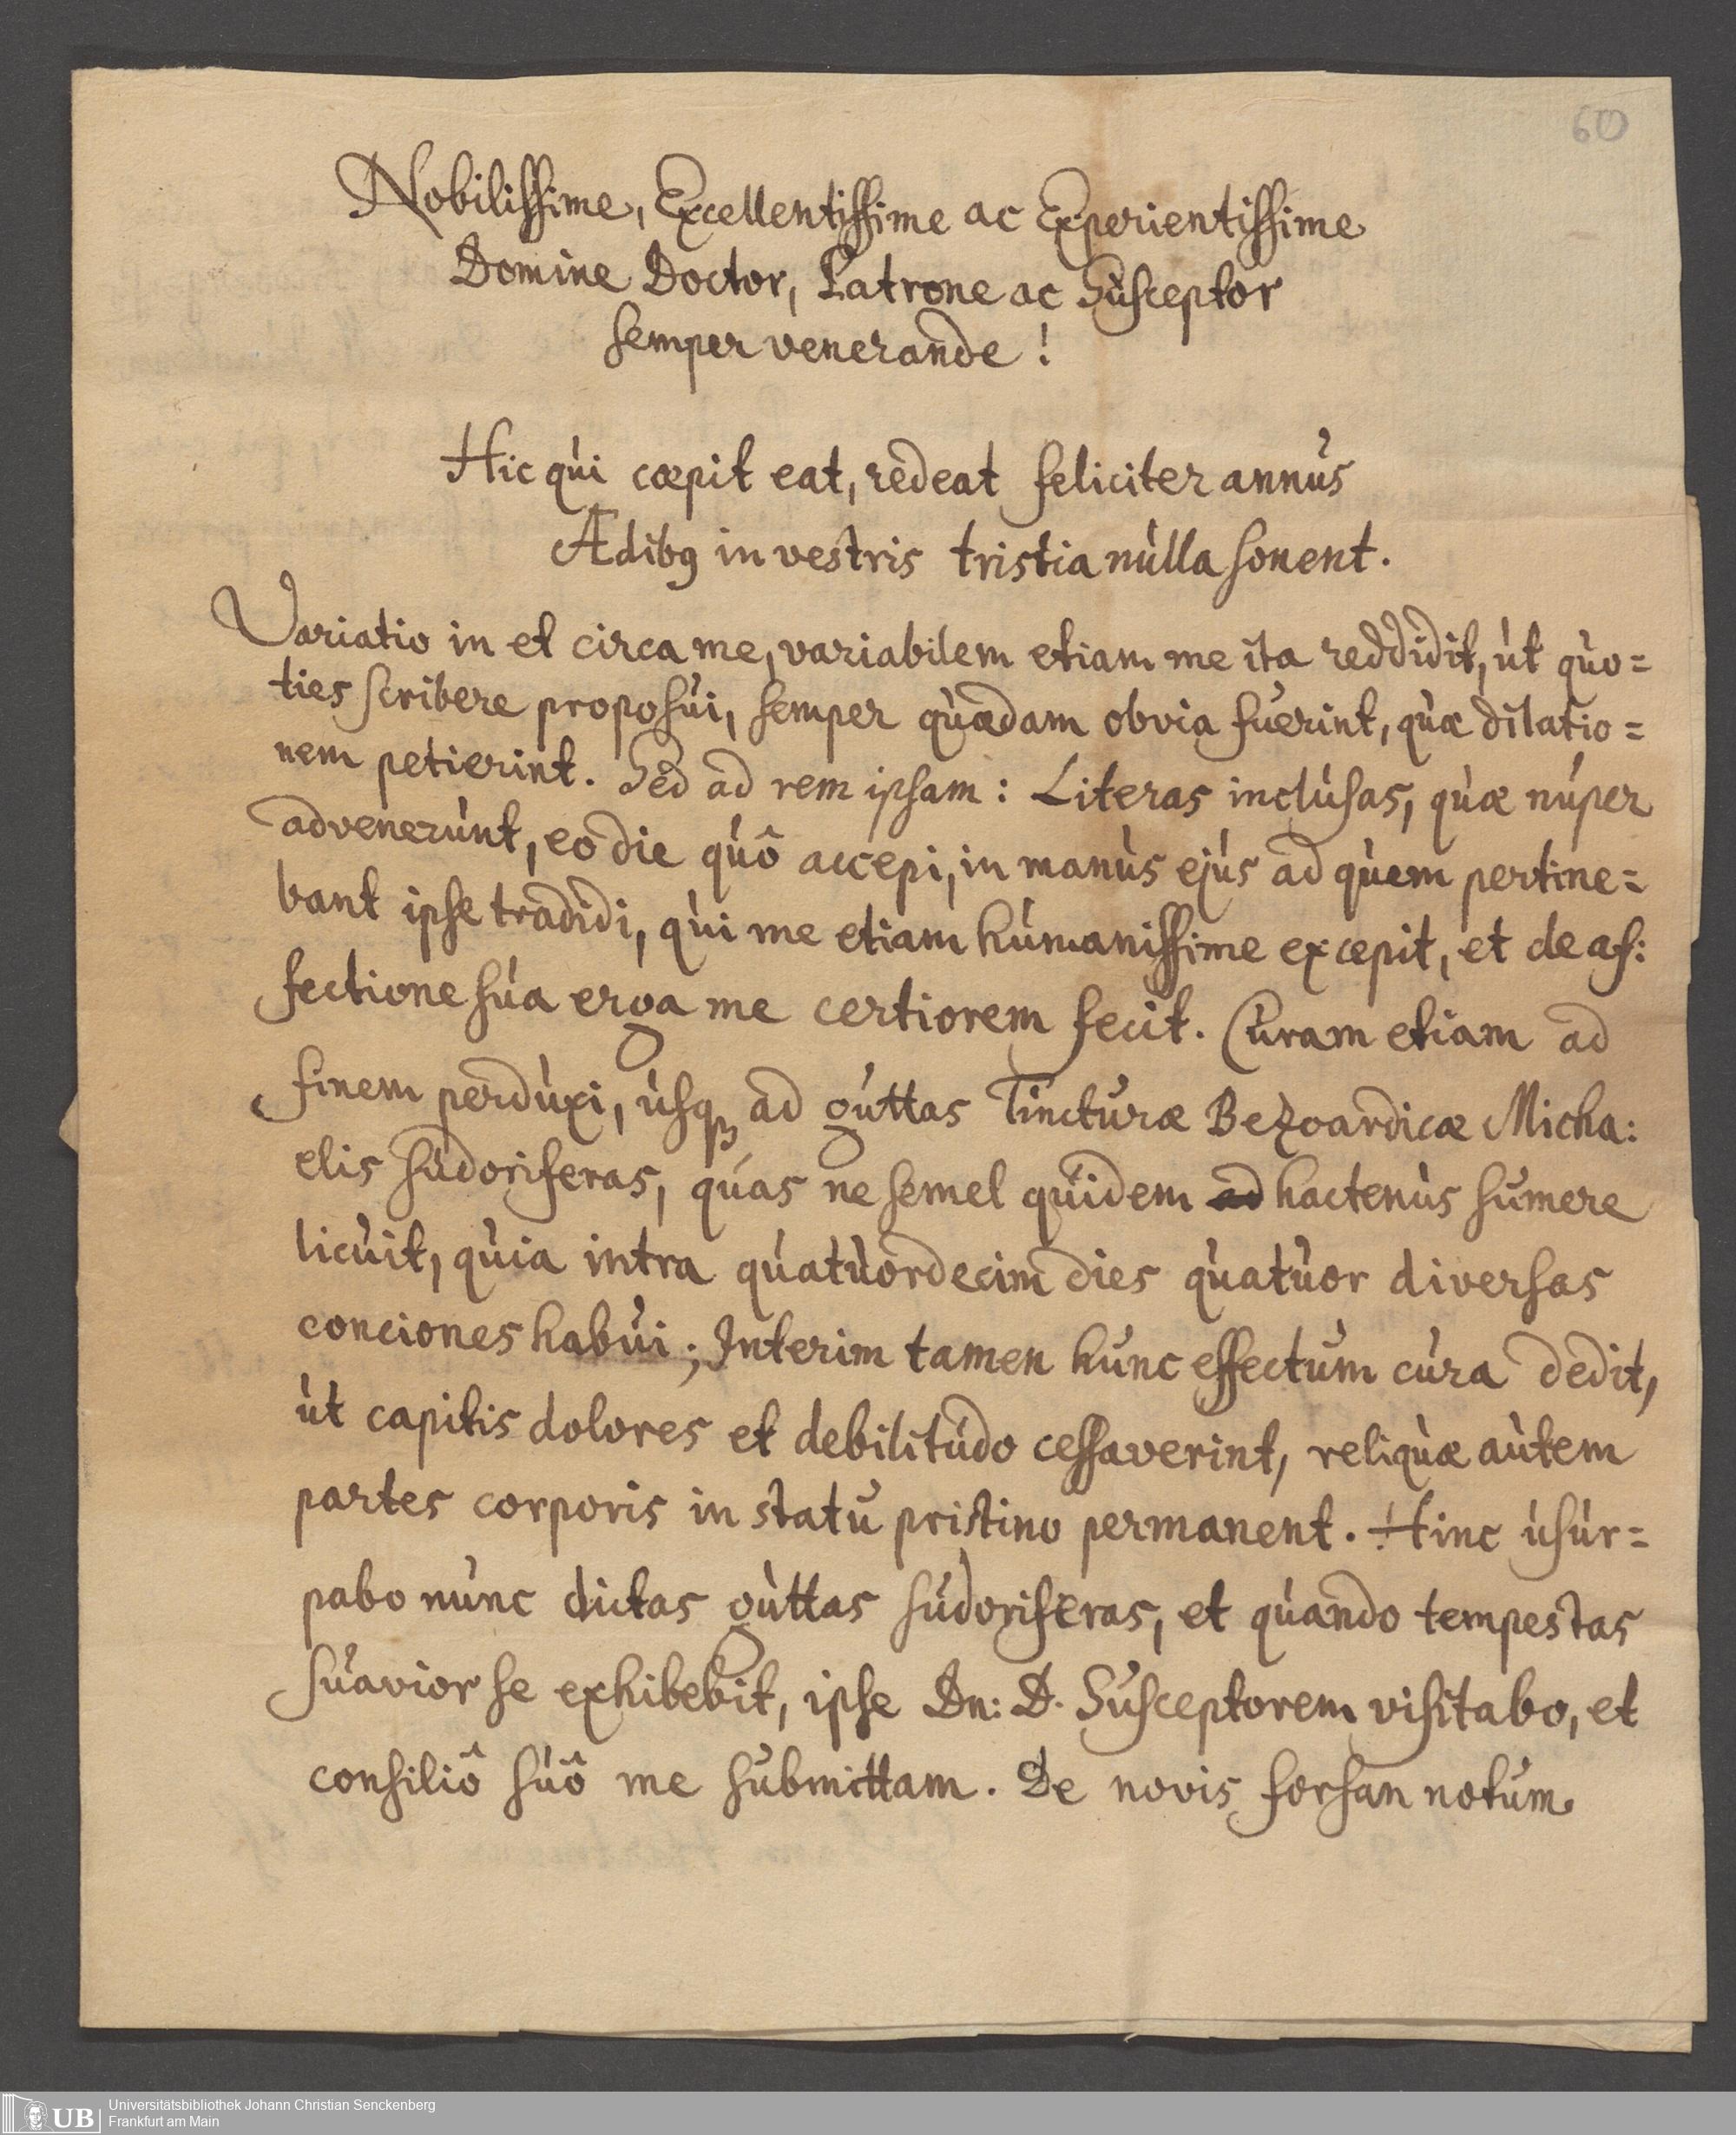 60
Nobilissime, Excellentissime ac Experientissime
Domine Doctor, Patrone ac Susceptor
semper venerande!
Hic qui cœpit eat, redeat feliciter annus
Ædibꝰ in vestris tristia nulla sonent.
Variatio in et circa me, variabilem etiam me ita reddidit, ut quo=
ties scribere proposui, semper quædam obvia fuerint, quæ dilatio=
nem petierint. Sed ad rem ipsam: Literas inclusas, quæ nuper
advenerunt, eo die quô accepi, in manus ejus ad quem pertine=
bant ipse tradidi, qui me etiam humanissime excepit, et de af:
fectione sua erga me certiorem fecit. Curam etiam ad
finem perduxi, usqꝫ ad guttas Tincturæ Bezoardicæ Micha:
elis sudoriferas, quas ne semel quidem ad hactenus sumere
licuit, quia intra quatuordecim dies quatuor diversas
conciones habui; Interim tamen hunc effectum cura dedit,
ut capitis dolores et debilitudo cessaverint, reliquæ autem
partes corporis in statu pristino permanent. Hinc usur=
pabo nunc dictas guttas sudoriferas, et quando tempestas
suavior se exhibebit, ipse Dn: D. Susceptorem visitabo, et
consiliô suô me submittam. De novis forsan notum
UB
Universitätsbibliothek Johann Christian Senckenberg
Frankfurt am Main